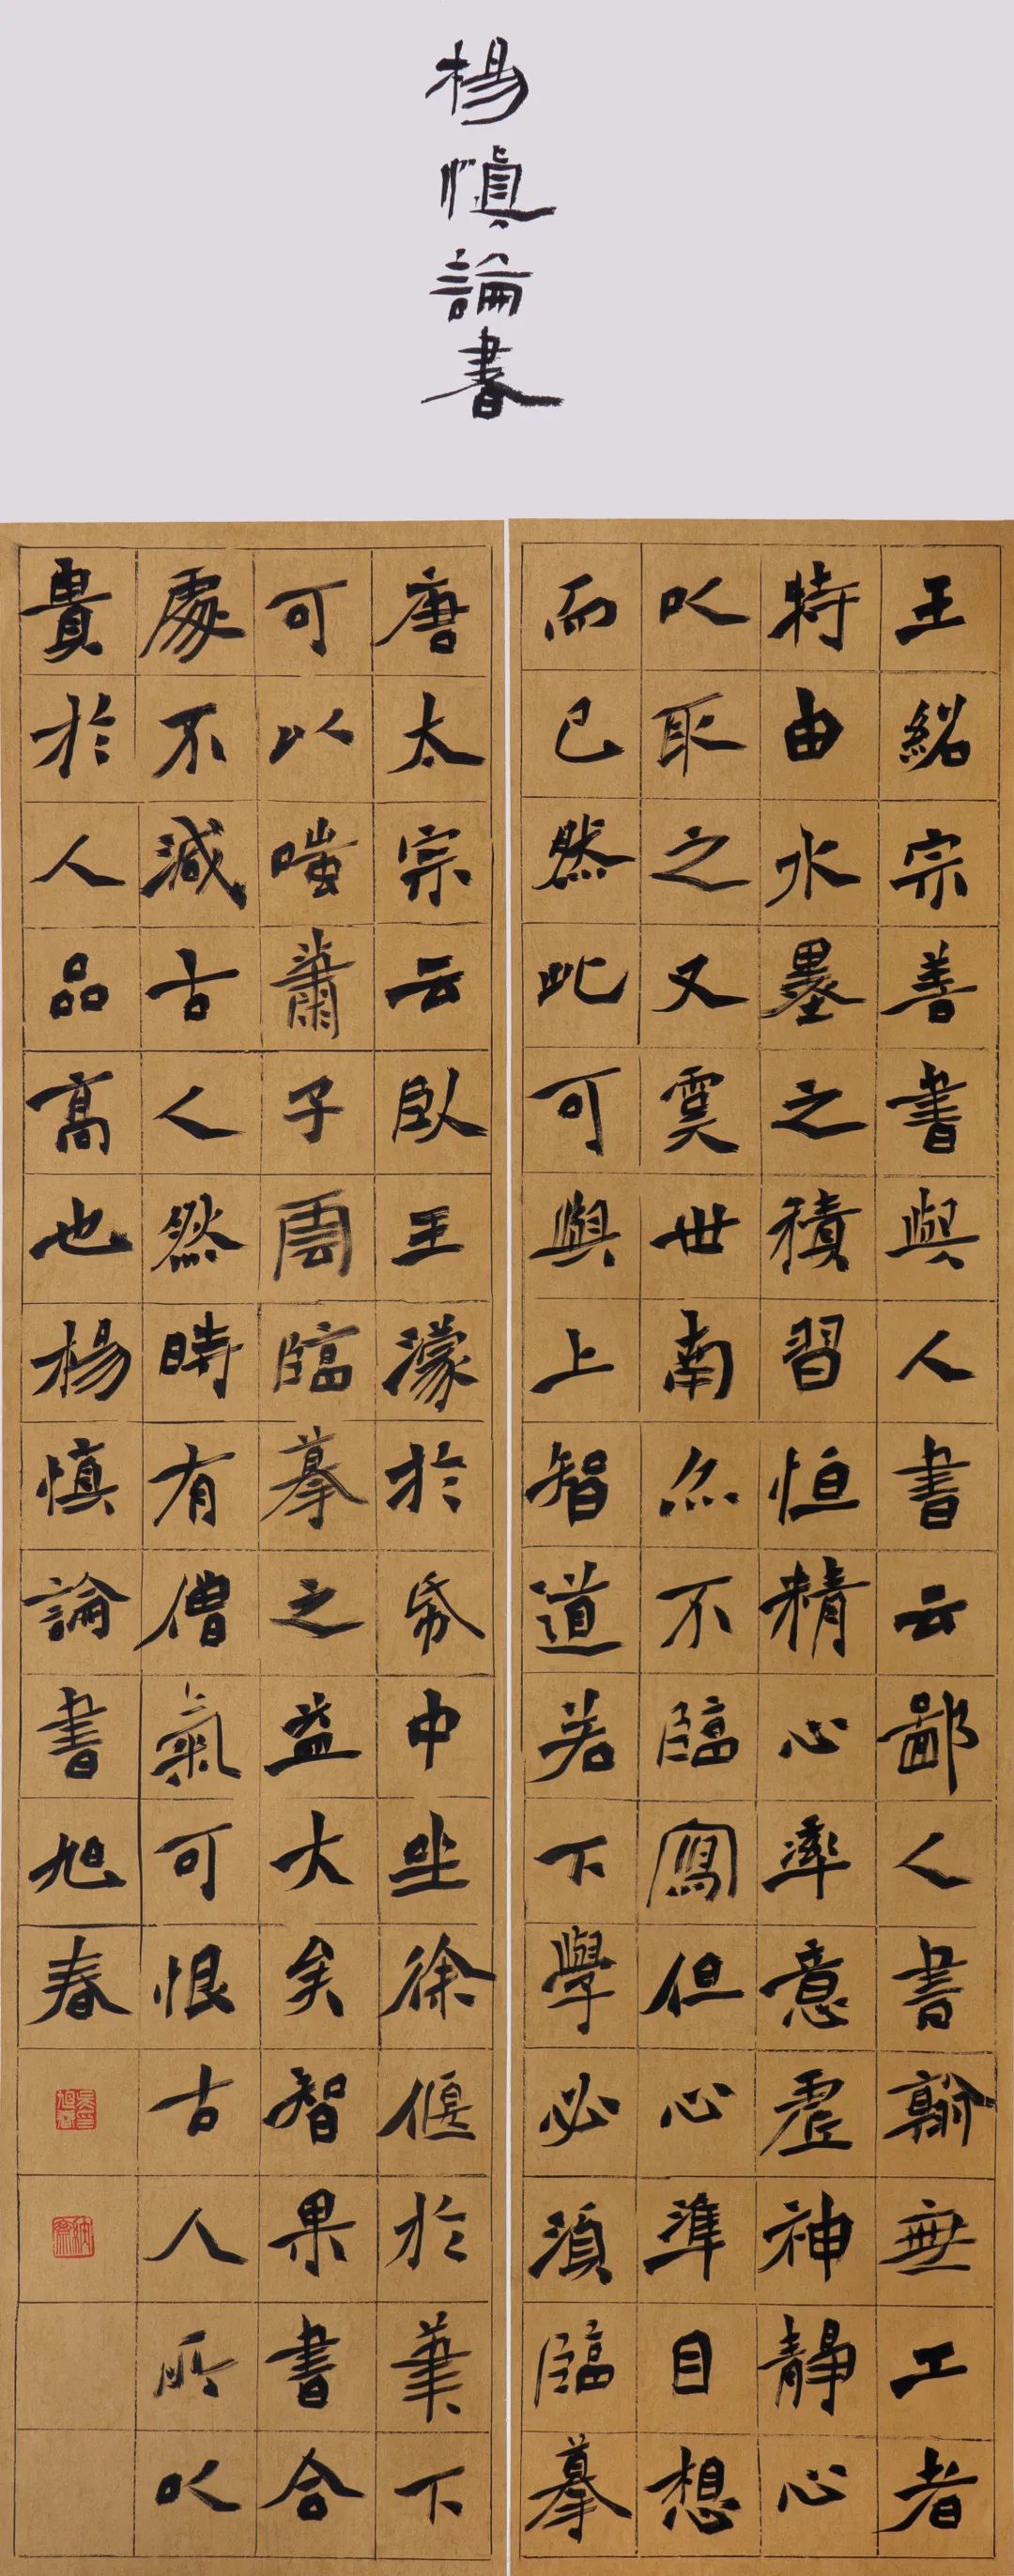 楊慎論書
王紹宗善書與人書云鄙人書翰無工者
特由水墨之積習恒精心率意虛神靜心
以取之又虞世南亦不臨寫但心準目想
而已然此可與上智道若下學必須臨摹
唐太宗云臥王濛於帋中坐徐偃於筆下
可以嗤蕭子雲臨摹之益大矣智果書合
處不減古人然時有僧氣可恨古人所以
貴於人品高也楊慎論書旭春